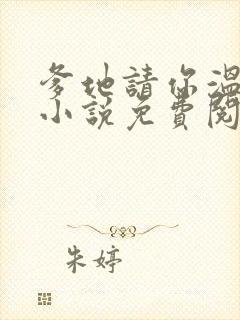 爹地請你溫
小說免費閱
朱婷